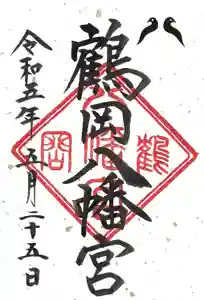 鶴岡八幡宮
令和五年五月二十五日